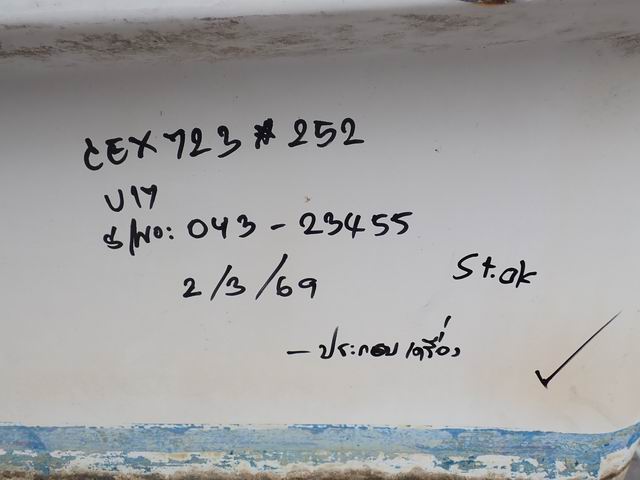 GEX 723 # 252
U17
S/No: 043 - 23455
2/3/69
St. ok
- ประกอบเครื่อง